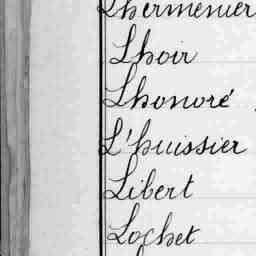 Lhermenier
Lhoir
Lhonoré
L'huissier
Libert
Lochet